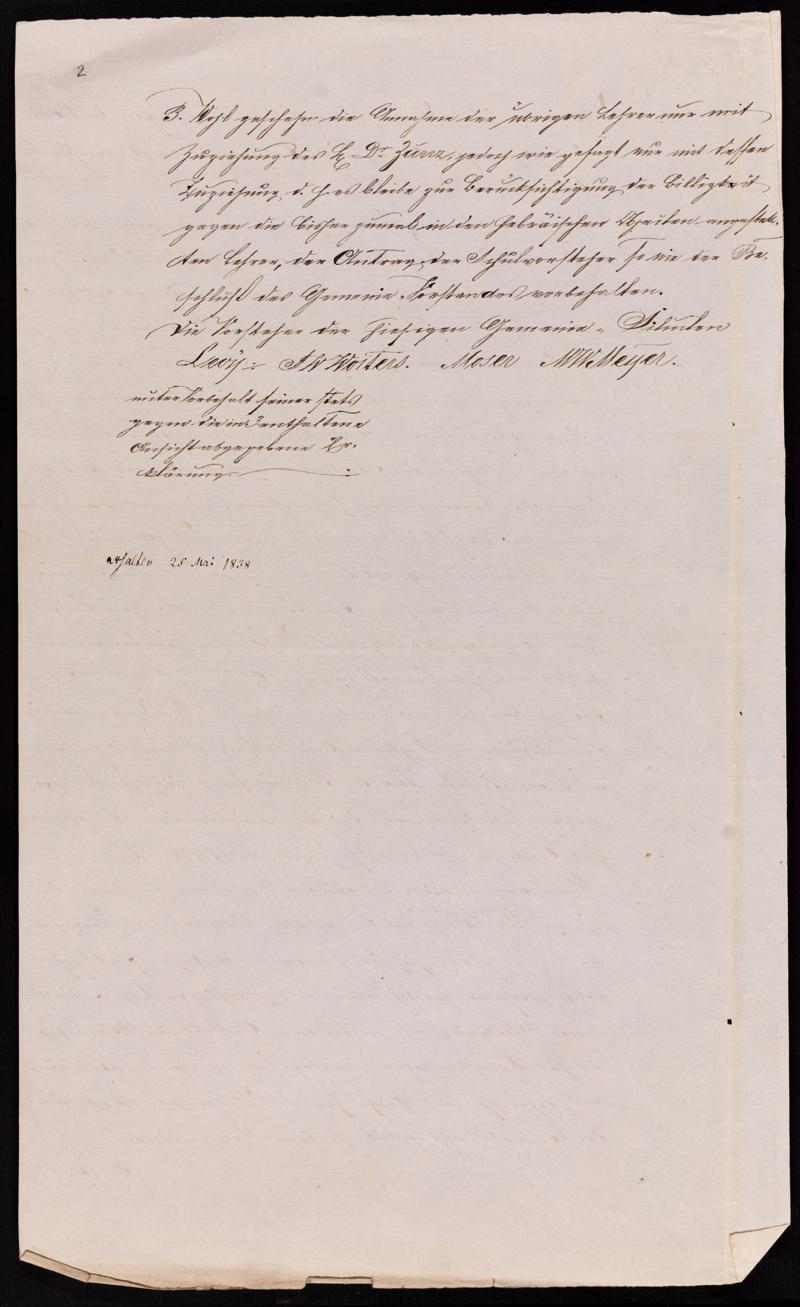 2
3. Wohl geschehe die Annahme der übrigen Lehrer nur mit
Zuziehung des H. Dr. Zunz, jedoch wie gesagt nur mit dessen
Zuziehung, d. h. es bleibe zur Berücksichtigung der Billigkeit
gegen die bisher zumal in den hebräischen angestell-
ten Lehrer, der Antrag der Schulvorsteher so wie der Be-
schluß des Gemeine-Vorstandes vorbehalten.
Die Vorsteher der hiesigen Gemeine
Levy. Wolters. Moser Meyer.
unter Vorbehalt seiner stets
gegen die in 3 enthaltene
Ansicht abgegebene Er-
klärung.
erhalten 25 Mai 1838